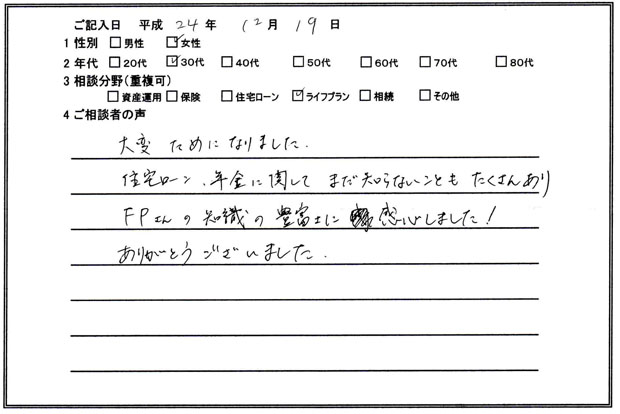 ご記入日 平成 24 年 12 月 19 日
1 性別 □男性 ☑女性
2 年代 □20代 ☑30代 □40代 □50代 □60代 □70代 □80代
3 相談分野(重複可)
□資産運用 □保険 □住宅ローン ☑ライフプラン □相続 □その他
4 ご相談者の声
大変 ために なりました.
住宅ローン、年金に関して まだ知らないことも たくさんあり
FPさんの知識の豊富さに 感心しました!
ありがとう ございました.